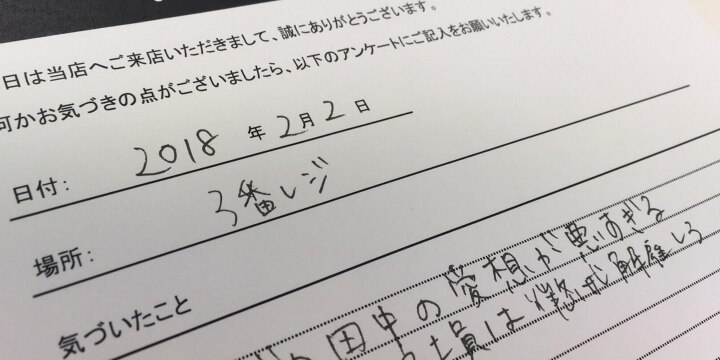 日は当店へご来店いただきまして、誠にありがとうございます。
何かお気づきの点がございましたら、以下のアンケートにご記入をお願いいたします。
日付： 2018 年 2 月 2 日
場所： 3番レジ
気づいたこと
田中の愛想が悪すぎる
員は 解雇しろ